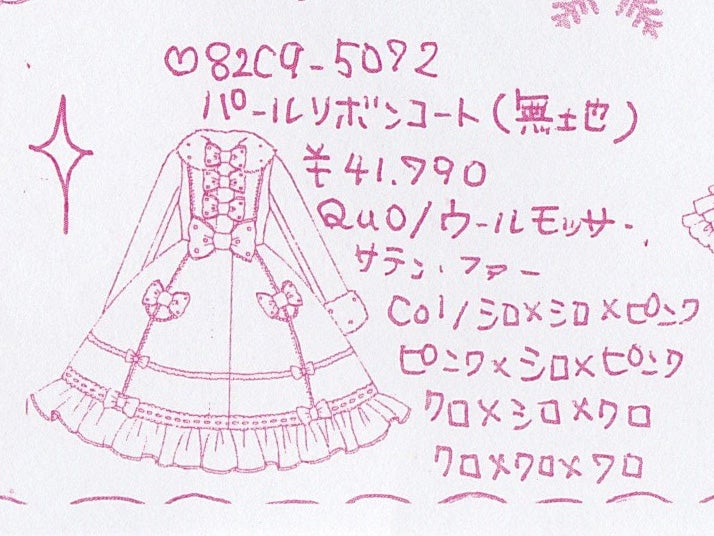 ♡82C9-5072
パールリボンコート(無土也)
¥41.790
Quo/ウールモッサ.
サテン.ファー
Col/シロ×シロ×ピンク
ピンク×シロ×ピンク
クロ×シロ×クロ
クロ×クロ×クロ